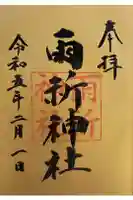 奉拝
雨祈神社
令和五年二月一日